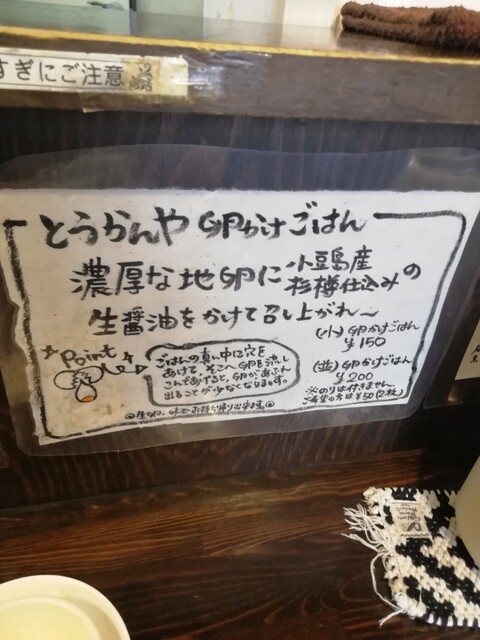 すぎにご注意
とうかんや 卵かけごはん
濃厚な地卵に小豆島産
杉樽仕込みの
生醤油をかけて召し上がれ〜
(小) 卵かけごはん
¥150
(並) 卵かけごはん
¥200
※のりは付きません。
ご希望の方は¥50(2枚)
Point
ごはんの真ん中に穴を
あけて、そこへ卵を流し
こんであげると、卵があふれ
出ることが少なくなります。
◎生卵、
お持ち帰り出来ます◎